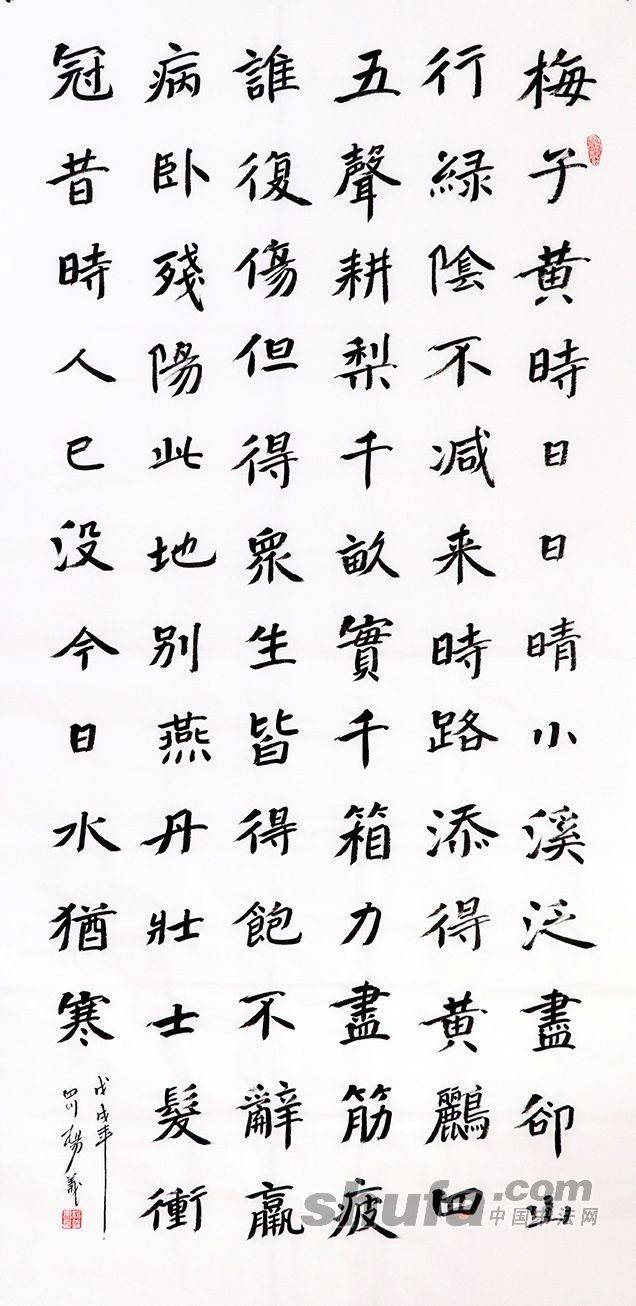 梅子黄時日日晴小溪泛盡卻山
行緑陰不減来時路添得黄鸝四
五聲耕梨千畝實千箱力盡筋疲
誰復傷但得眾生皆得飽不辭羸
病卧殘陽此地别燕丹壯士髮衝
冠昔時人已没今日水猶寒
戊戌年
四川楊義
shufa.com
中国书法网